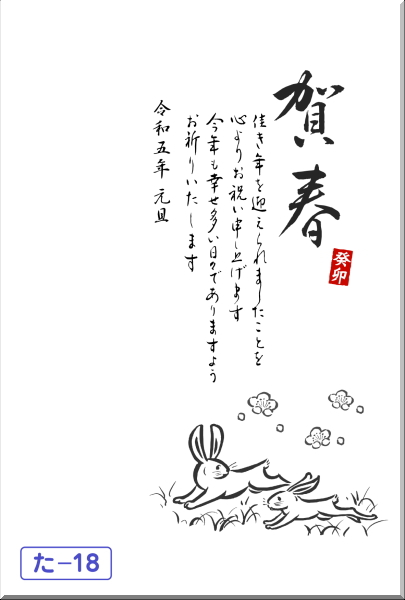 賀春
癸卯
佳き年を迎えられましたことを
心よりお祝い申し上げます
今年も幸せ多い日々でありますよう
お祈りいたします
令和五年 元旦
た-18